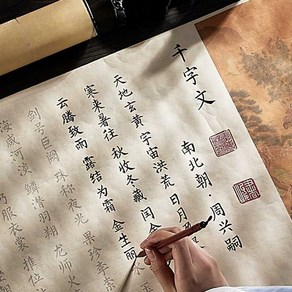 千字文
南北朝·周兴嗣
天地玄黄 宇宙洪荒 日月
寒来暑往 秋收冬藏 闰
云腾致雨 露结为霜 金生丽
剑号巨阙 珠称夜光 果珍李
海咸河淡 鳞潜羽翔 龙师火
服衣裳 推位